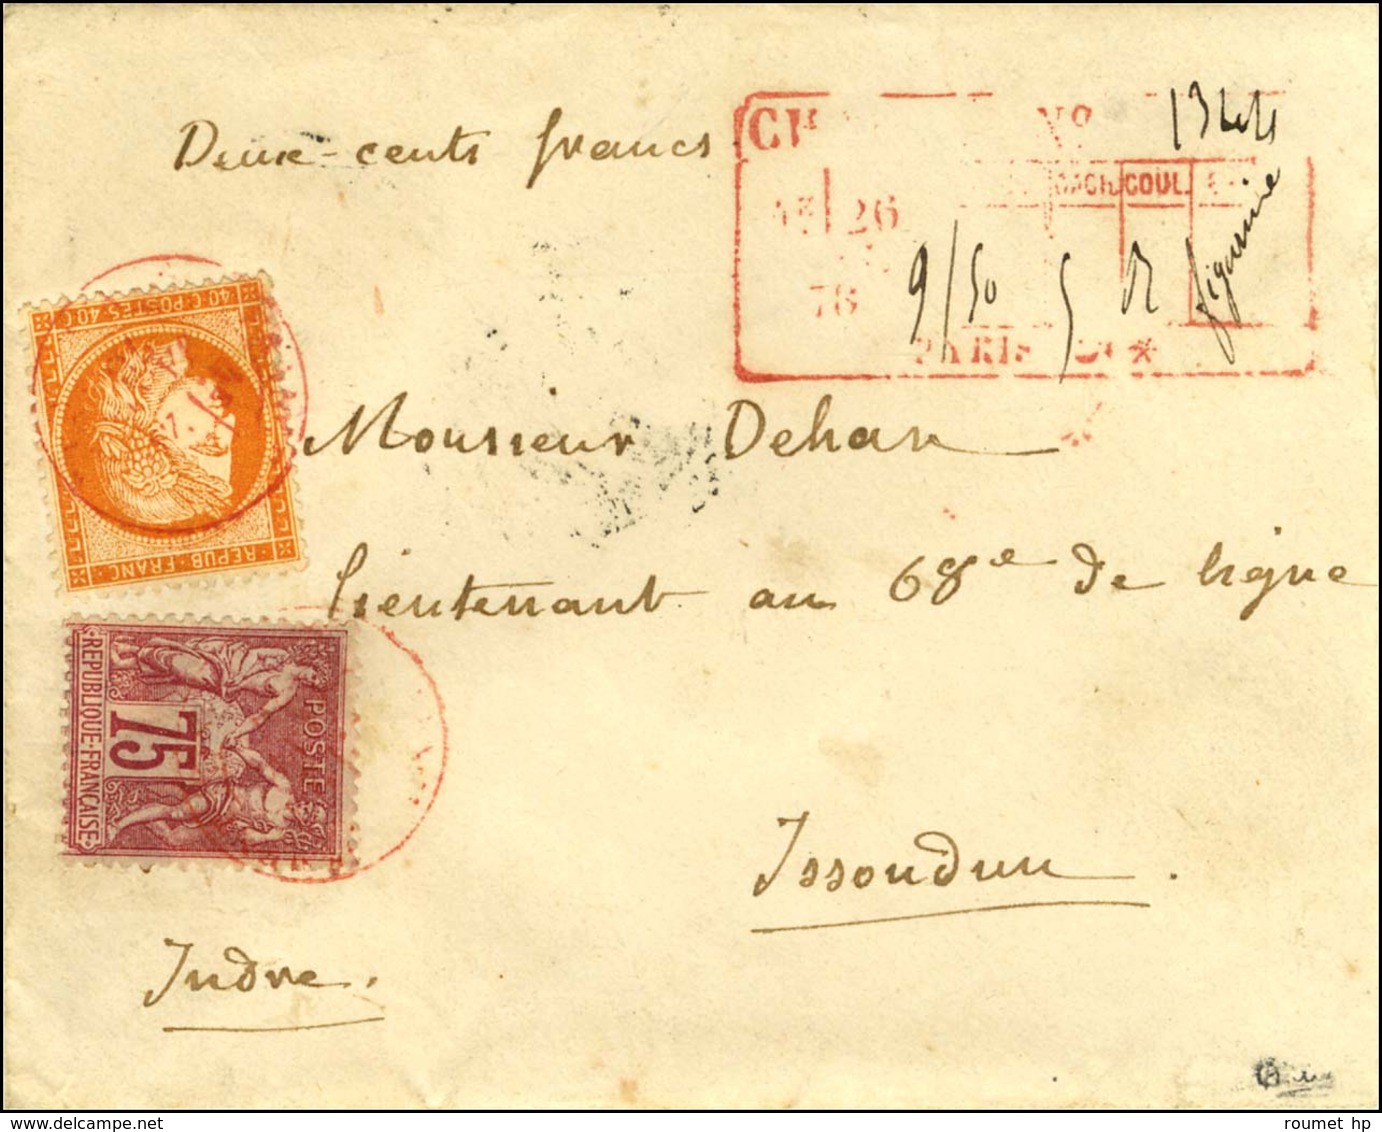 Deux-cents francs
CH Nº 1344
CACH. COUL.
26
76
9/50 5 R
PARIS
40 C. POSTES. 40 C
REPUB. FRANC.
Monsieur Dehan
lieutenant au 68e de ligne
POSTE
75
REPUBLIQUE·FRANÇAISE
Issoudun.
Indre.
roumet hp
www.delcampe.net